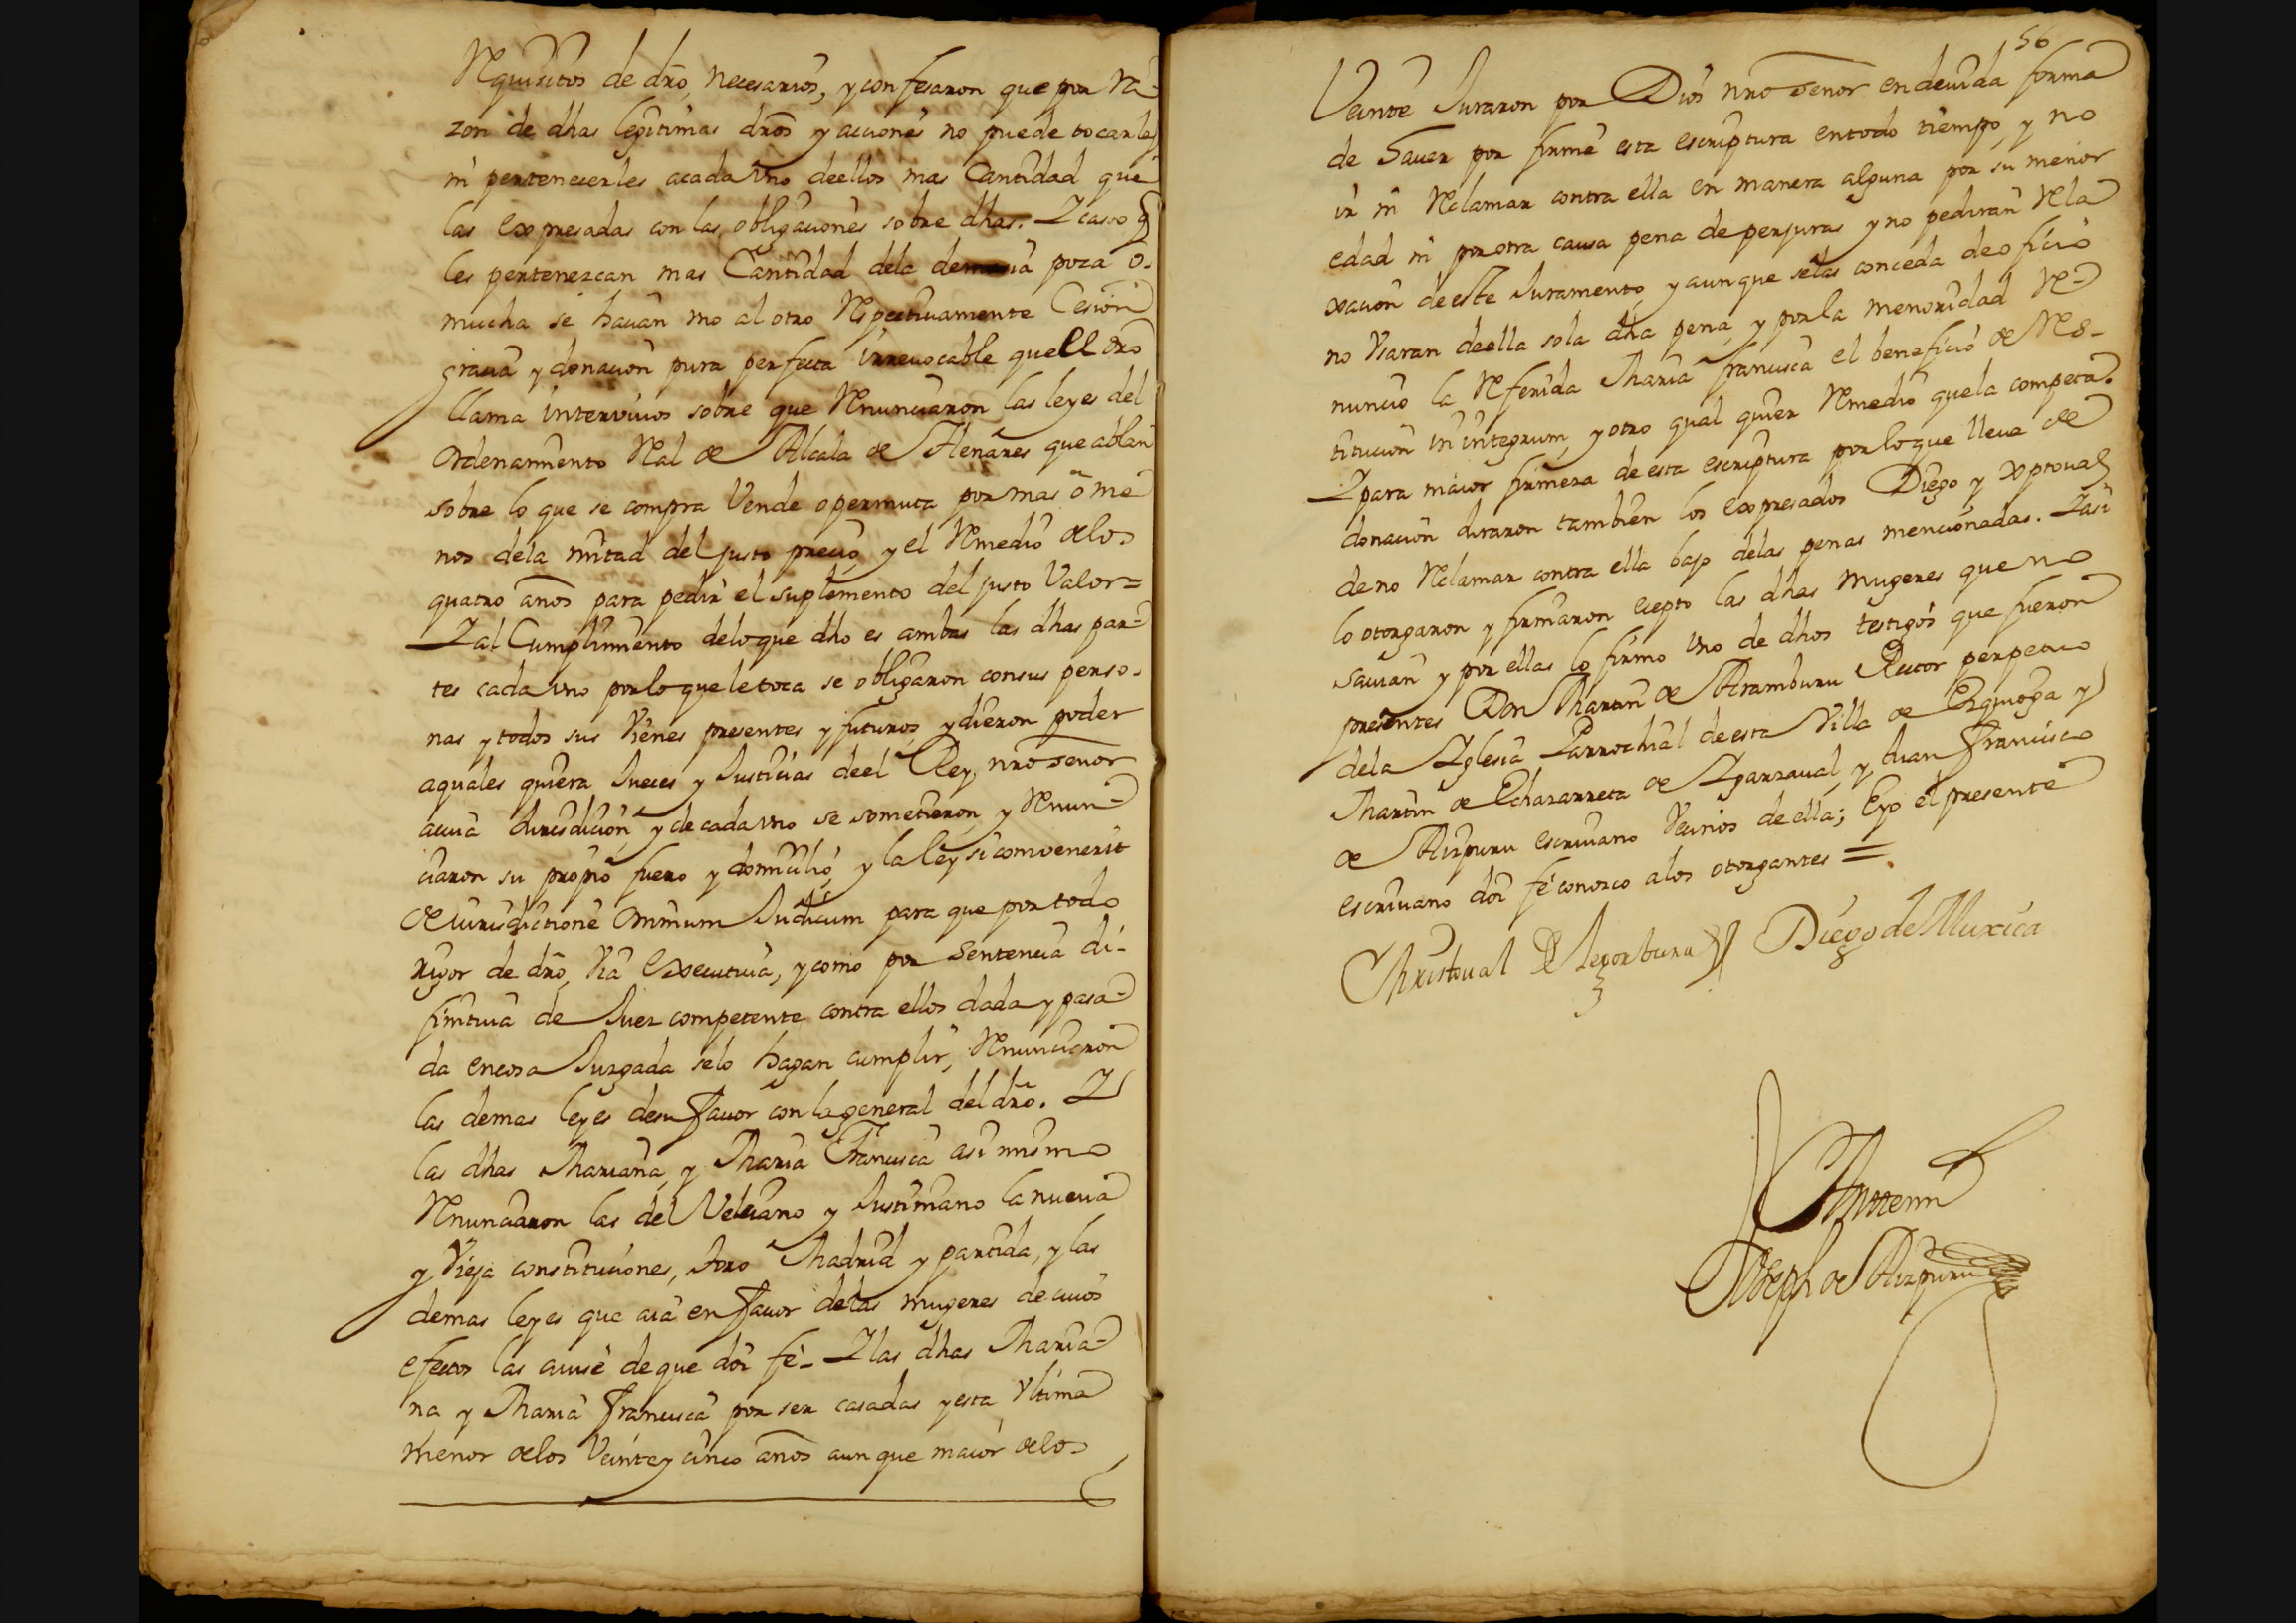 Requisitos de dro, necesarios, y confesaron que por ra-
zon de dhas legitimas dros y acciones no puede tocarles
ni pertenecerles acada vno deellos mas Cantidad que
las expresadas con las obligaciones sobre dhas. Y caso q
les pertenezcan mas Cantidad dela demasia poca o
mucha se hacian vno al otro Respectiuamente Cesion
gracia y donacion pura perfecta irreuocable que el dro
llama intervivos sobre que Renunciaron las leyes del
Ordenamiento Real de Alcala de Henares que ablan
sobre lo que se compra Vende o permuta por mas o me
nos dela mitad del justo precio, y el Remedio delos
quatro años para pedir el suplemento del justo Valor=
Y al Cumplimiento delo que dho es ambas las dhas par-
tes cada vno por lo que le toca se obligaron con sus perso-
nas y todos sus Vienes presentes y futuros, y dieron poder
a quales quiera Jueces y Justicias de el Rey, nro señor
acuia Jurisdicion y de cada vno se sometieron, y Renun-
ciaron su propio fuero y domicilio, y la ley si convenerit
de iurisdictione Omnium Judicum para que por todo
rigor de dro, Via Executiua, y como por Sentencia di-
finitiua de Juez competente contra ellos dada y pasa-
da en cosa Juzgada selo hagan cumplir, Renunciaron
las demas leyes de su fauor con la general del dro. Y
las dhas Mariana, y Maria Francisca asi mismo
Renunciaron las del Veleiano y Justiniano la nueua
y Vieja constituciones, Toro Madrid y partida, y las
demas leyes que aia en fauor delas mugeres de cuios
efectos las auise de que doi fe- Y las dhas Maria-
na y Maria Francisca por ser casadas y esta Vltima
menor delos Veinte y cinco años aun que maior delos
56
Veinte Juraron por Dios nro señor en deuida forma
de hauer por firme esta escriptura en todo tiempo, y no
ir ni Reclamar contra ella en manera alguna por su menor
edad ni por otra causa pena de perjuras y no pediran Rela
xacion de este Juramento, y aunque selas conceda de oficio
no Vsaran deella sola dha pena, y por la menoridad Re-
nuncio la Referida Maria Francisca el beneficio de Res-
titucion in integrum, y otro qual quier Remedio que la competa.
Y para maior firmeza de esta escriptura por lo que lleua de
donacion Juraron tambien los expresados Diego y Xptoual
de no Reclamar contra ella bajo delas penas mencionadas. Y asi
lo otorgaron y firmaron exepto las dhas mugeres que no
sauian y por ellas lo firmo vno de dhos testigos que fueron
presentes Don Martin de Aramburu Rector perpetuo
dela Yglesia Parrochial de esta Villa de Ezquioga y
Martin de Echazarreta de Ygarzaual, y Juan Francisco
de Aizpuru escriuano Vecinos de ella; E yo el presente
escriuano doi fe conozco alos otorgantes =
Christoual de Legorburu Diego de Muxica
Ante mi
Joseph de Aizpuru